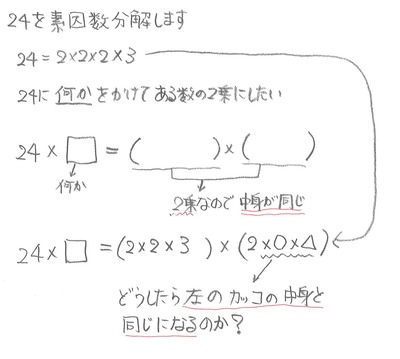 24を素因数分解します
24=2×2×2×3
24に何かをかけてある数の2乗にしたい
24×□=(　　　)×(　　　)
何か
2乗なので中身が同じ
24×□=(2×2×3　)×(2×○×△)
どうしたら左のカッコの中身と
同じになるのか?